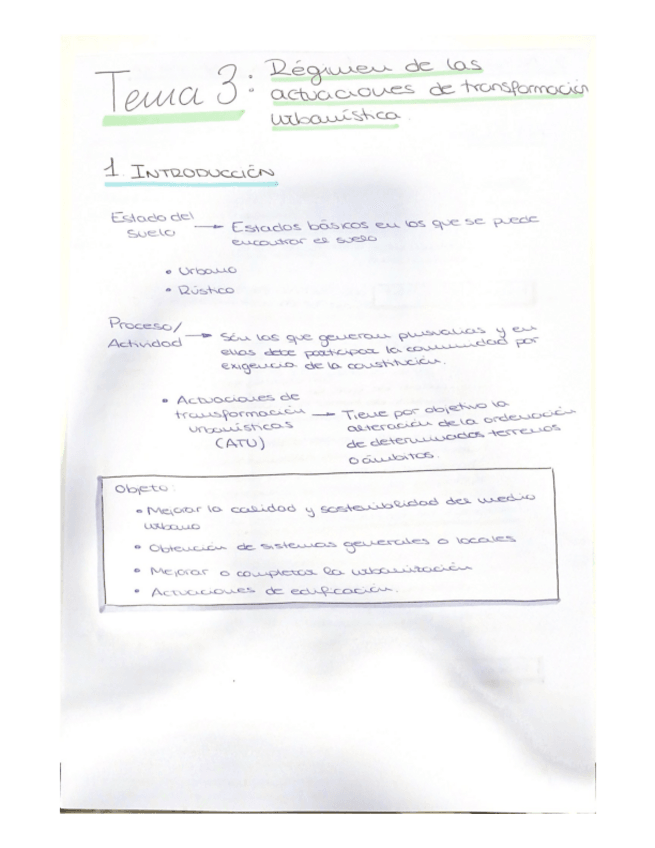 Tema 3: Régimen de las
actuaciones de transformación
urbanística.
1. INTRODUCCIÓN
Estado del
suelo → Estados básicos en los que se puede
encontrar el suelo
• Urbano
• Rústico
Proceso/
Actividad → Son los que generan plusvalías y en
ellas debe participar la comunidad por
exigencia de la constitución.
• Actuaciones de
transformación
urbanísticas
(ATU) → Tiene por objetivo la
alteración de la ordenación
de determinados terrenos
o ámbitos.
Objeto:
• Mejorar la calidad y sostenibilidad del medio
urbano
• Obtención de sistemas generales o locales
• Mejorar o completar la urbanización
• Actuaciones de edificación.